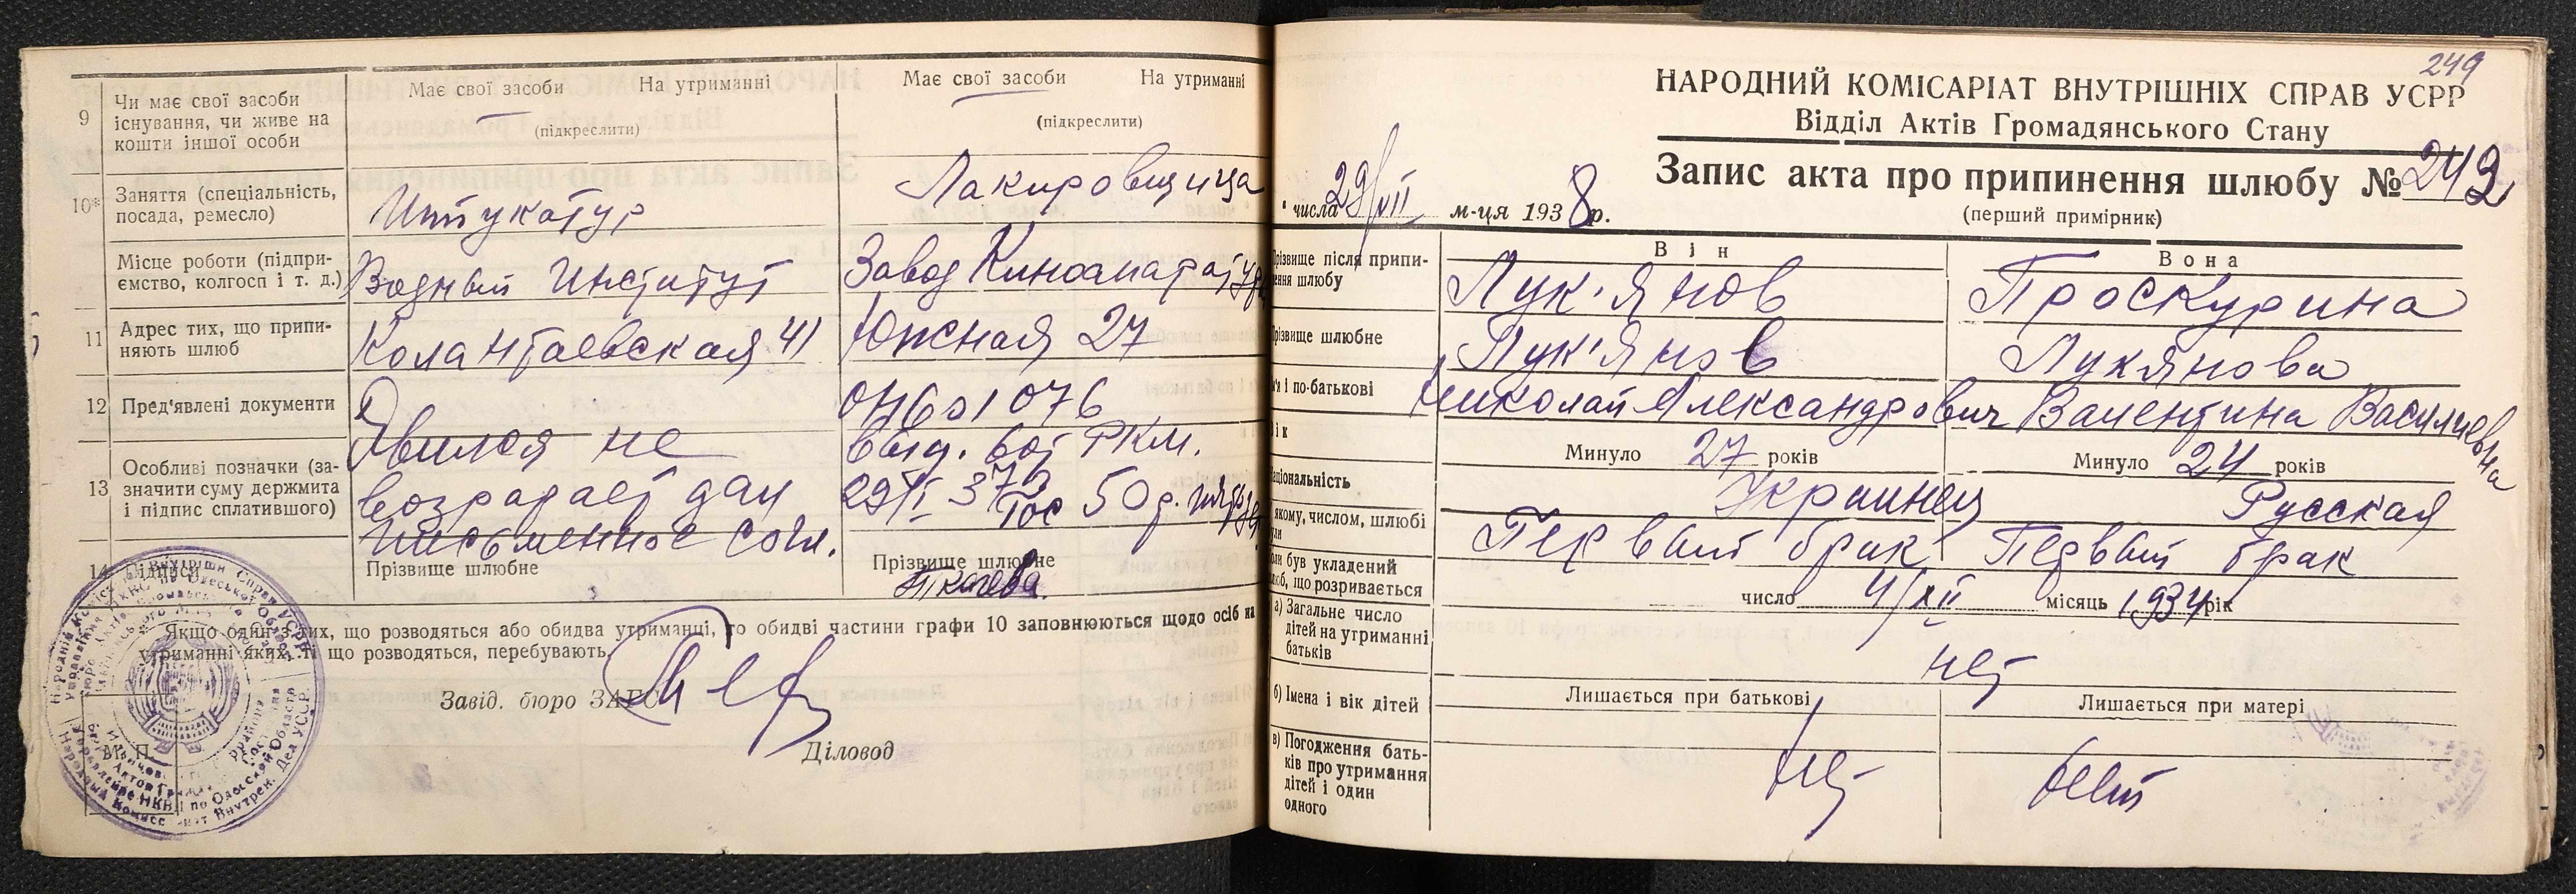 9
Чи має свої засоби існування, чи живе на кошти іншої особи
Має свої засоби На утриманні
(підкреслити)
Має свої засоби На утриманні
(підкреслити)
10*
Заняття (спеціальність, посада, ремесло)
Штукатур
Лакировщица
Місце роботи (підпри-
ємство, колгосп і т. д.)
Водный Институт
Завод Киноапаратуры
11
Адрес тих, що припи-
няють шлюб
Колантаевская 41
Южная 27
12
Пред'явлені документи
Явился не
ОН601076
выд. 6от РКМ.
13
Особливі позначки (за-
значити суму держмита
і підпис сплатившого)
возражает дал
письменное согл.
50 р.
14
Підписи
Прізвище шлюбне
Прізвище шлюбне
Якщо один з тих, що розводяться або обидва утриманці, то обидві частини графи 10 заповнюються щодо осіб на
утриманні яких ті, що розводяться, перебувають.
Завід. бюро ЗАГС
Діловод
М. П.
249
НАРОДНИЙ КОМІСАРІАТ ВНУТРІШНІХ СПРАВ УСРР
Відділ Актів Громадянського Стану
Запис акта про припинення шлюбу № 249
(перший примірник)
числа 29/VII м-ця 1938 р.
Він
Вона
Прізвище після припи-
нення шлюбу
Лук'янов
Проскурина
Прізвище шлюбне
Лук'янов
Лукянова
Ім'я і по-батькові
Николай Александрович
Валентина Васильевна
Вік
Минуло 27 років
Минуло 24 років
Національність
Украинец
Русская
якому, числом, шлюбі
були
Первый брак
Первый брак
Коли був укладений
шлюб, що розривається
число 4/XII місяць 1934 рік
а) Загальне число
дітей на утриманні
батьків
нет
б) Імена і вік дітей
Лишається при батькові
Лишається при матері
в) Погодження бать-
ків про утримання
дітей і один
одного
нет